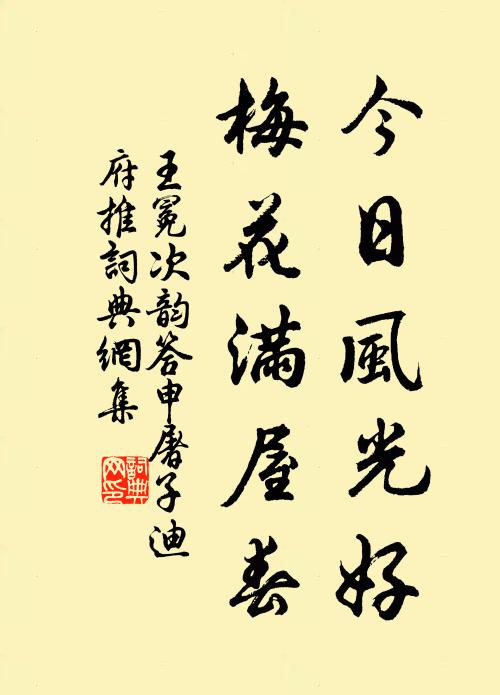 今日風光好
梅花滿屋春
王冕次韵答申屠子迪
府推詞典網集
詞典
网印